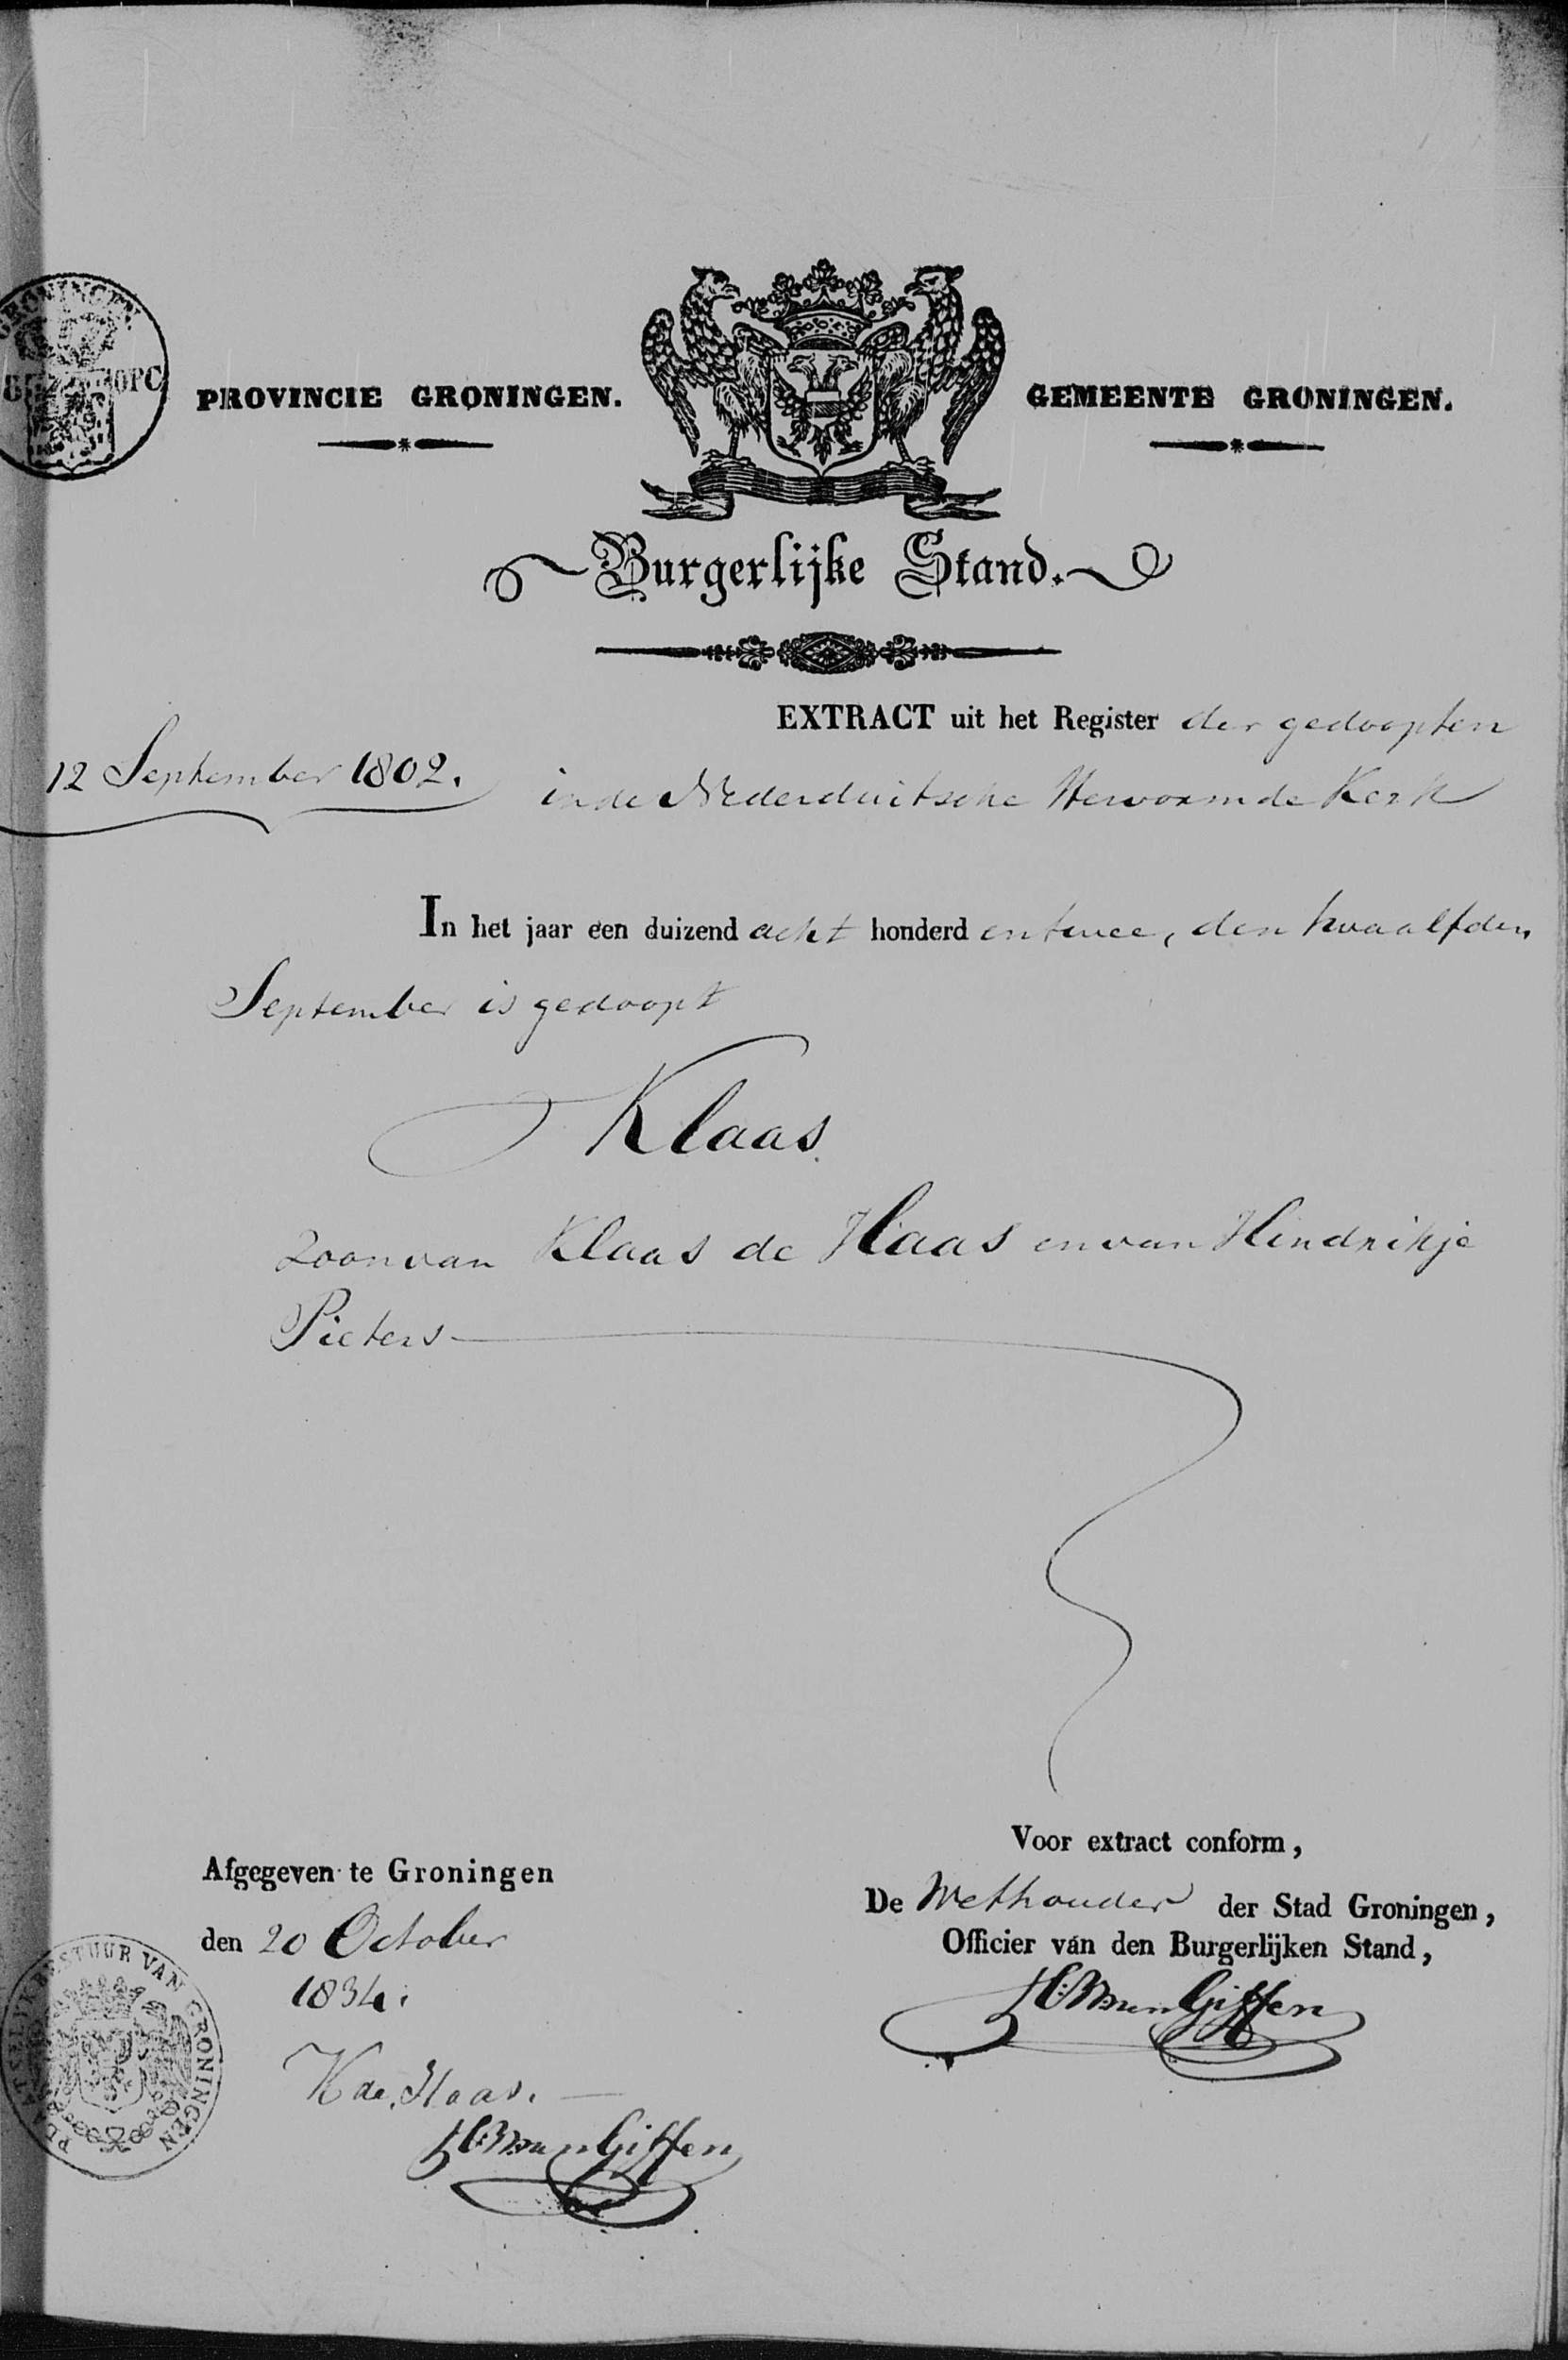 GRONINGEN.
OPC
PROVINCIE GRONINGEN.
GEMEENTE GRONINGEN.
Burgerlijke Stand.
EXTRACT uit het Register der gedoopten
12 September 1802.
in de Nederduitsche Hervormde Kerk
In het jaar een duizend acht honderd en twee, den twaalfden
September is gedoopt
Klaas
zoon van Klaas de Haas en van Hindrikje
Pieters
Voor extract conform,
De Wethouder der Stad Groningen,
Officier van den Burgerlijken Stand,
van Giffen
Afgegeven te Groningen
den 20 October
1834.
K de Haas.
van Giffen
PLAATSELYK BESTUUR VAN GRONINGEN